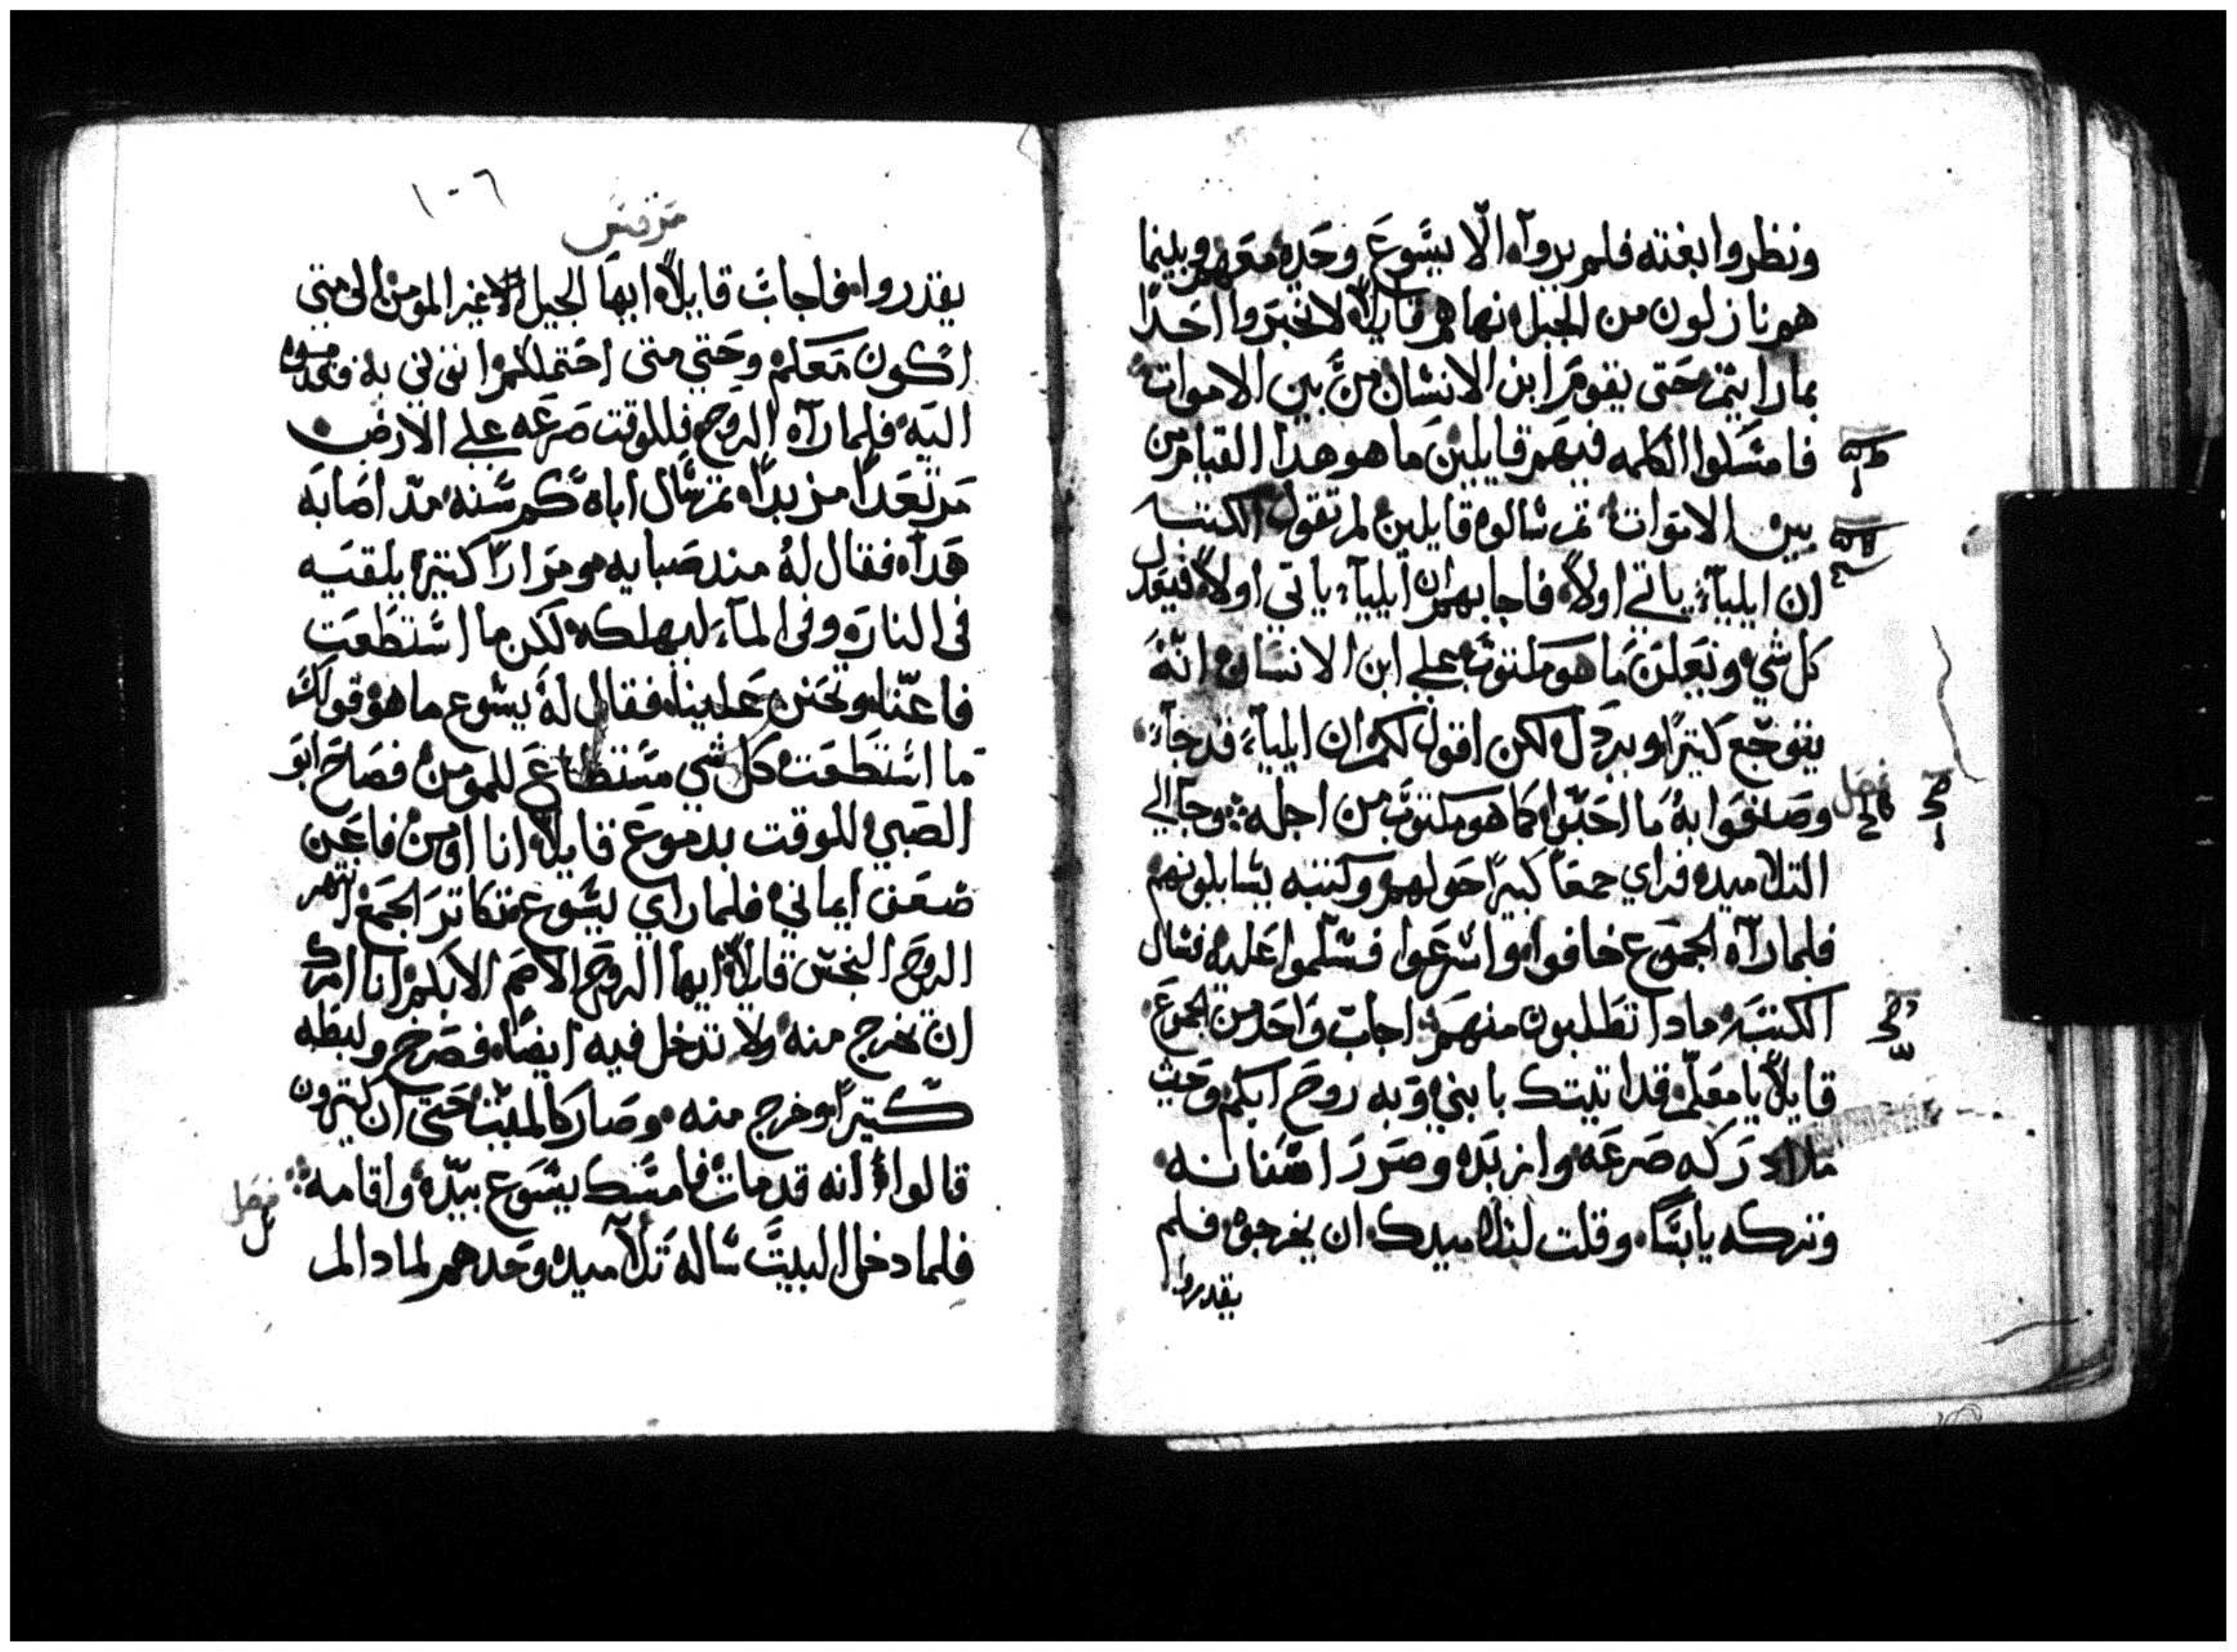 ونظروا بغتة فلم يروا الا يسوع وحده معهم وبينما
هم نازلون من الجبل نهاهم قايلا لا تخبروا احدا
بما رايتم حتى يقوم ابن الانسان من بين الاموات
فامسكوا الكلمه فيهم قايلين ما هو هدا القيام من
بين الاموات ثم سالوه قايلين لم تقول الكتبه
ان ايلياء ياتي اولا فاجابهم ان ايلياء ياتي اولا فيعدل
كل شي وتعلن ما هو مكتوب علي ابن الانسان انه
يتوجع كتيرا ويردل لكن اقول لكم ان ايلياء قد جاء
وصنعوا به ما احبوا كما هو مكتوب من اجله وجا الي
فصل
التلاميده فراي جمعا كبيرا حولهم وكتبه يسايلونهم
فلما رآه الجموع خافوا واسرعوا فسلموا عليه فسال
الكتبه مادا تطلبون منهم اجاب واحد من الجموع
قايلا يا معلم قد اتيتك بابني وبه روح ابكم وحيث
ما ادركه صرعه وازبده وصرر اسنانه
وتتركه يابسا وقلت لتلاميدك ان يخرجوه فلم
يقدروا
١٠٦
مرقس
يقدروا فاجاب قايلا ايها الجيل الغير المومن الى متى
اكون معكم وحتي متى احتملكم اتوني به فقدموه
اليه فلما رآه الروح فللوقت صرعه علي الارض
مرتعدا مزبدا ثم سال اباه كم سنه مند اصابه
هدا فقال له مند صبايه ومرارا كتيره يلقيه
في النار وفي الماء ليهلكه لكن ما استطعت
فاعنا وتحنن علينا فقال له يسوع ما هو قولك
ما استطعت كل شي مستطاع للمومن فصاح ابو
الصبي للوقت بدموع قايلا انا اومن فاعن
ضعف ايماني فلما راي يسوع تكاتر الجمع انتهر
الروح النجس قايلا ايها الروح الاصم الابكم انا امرك
ان تخرج منه ولا تدخل فيه ايضا فصرخ ولبطه
كتيرا وخرج منه وصار كالميت حتى ان كتيرون
قالوا انه قد مات فامسك يسوع بيده واقامه
فصل
فلما دخل البيت ساله تلاميده وحدهم لمادا لم